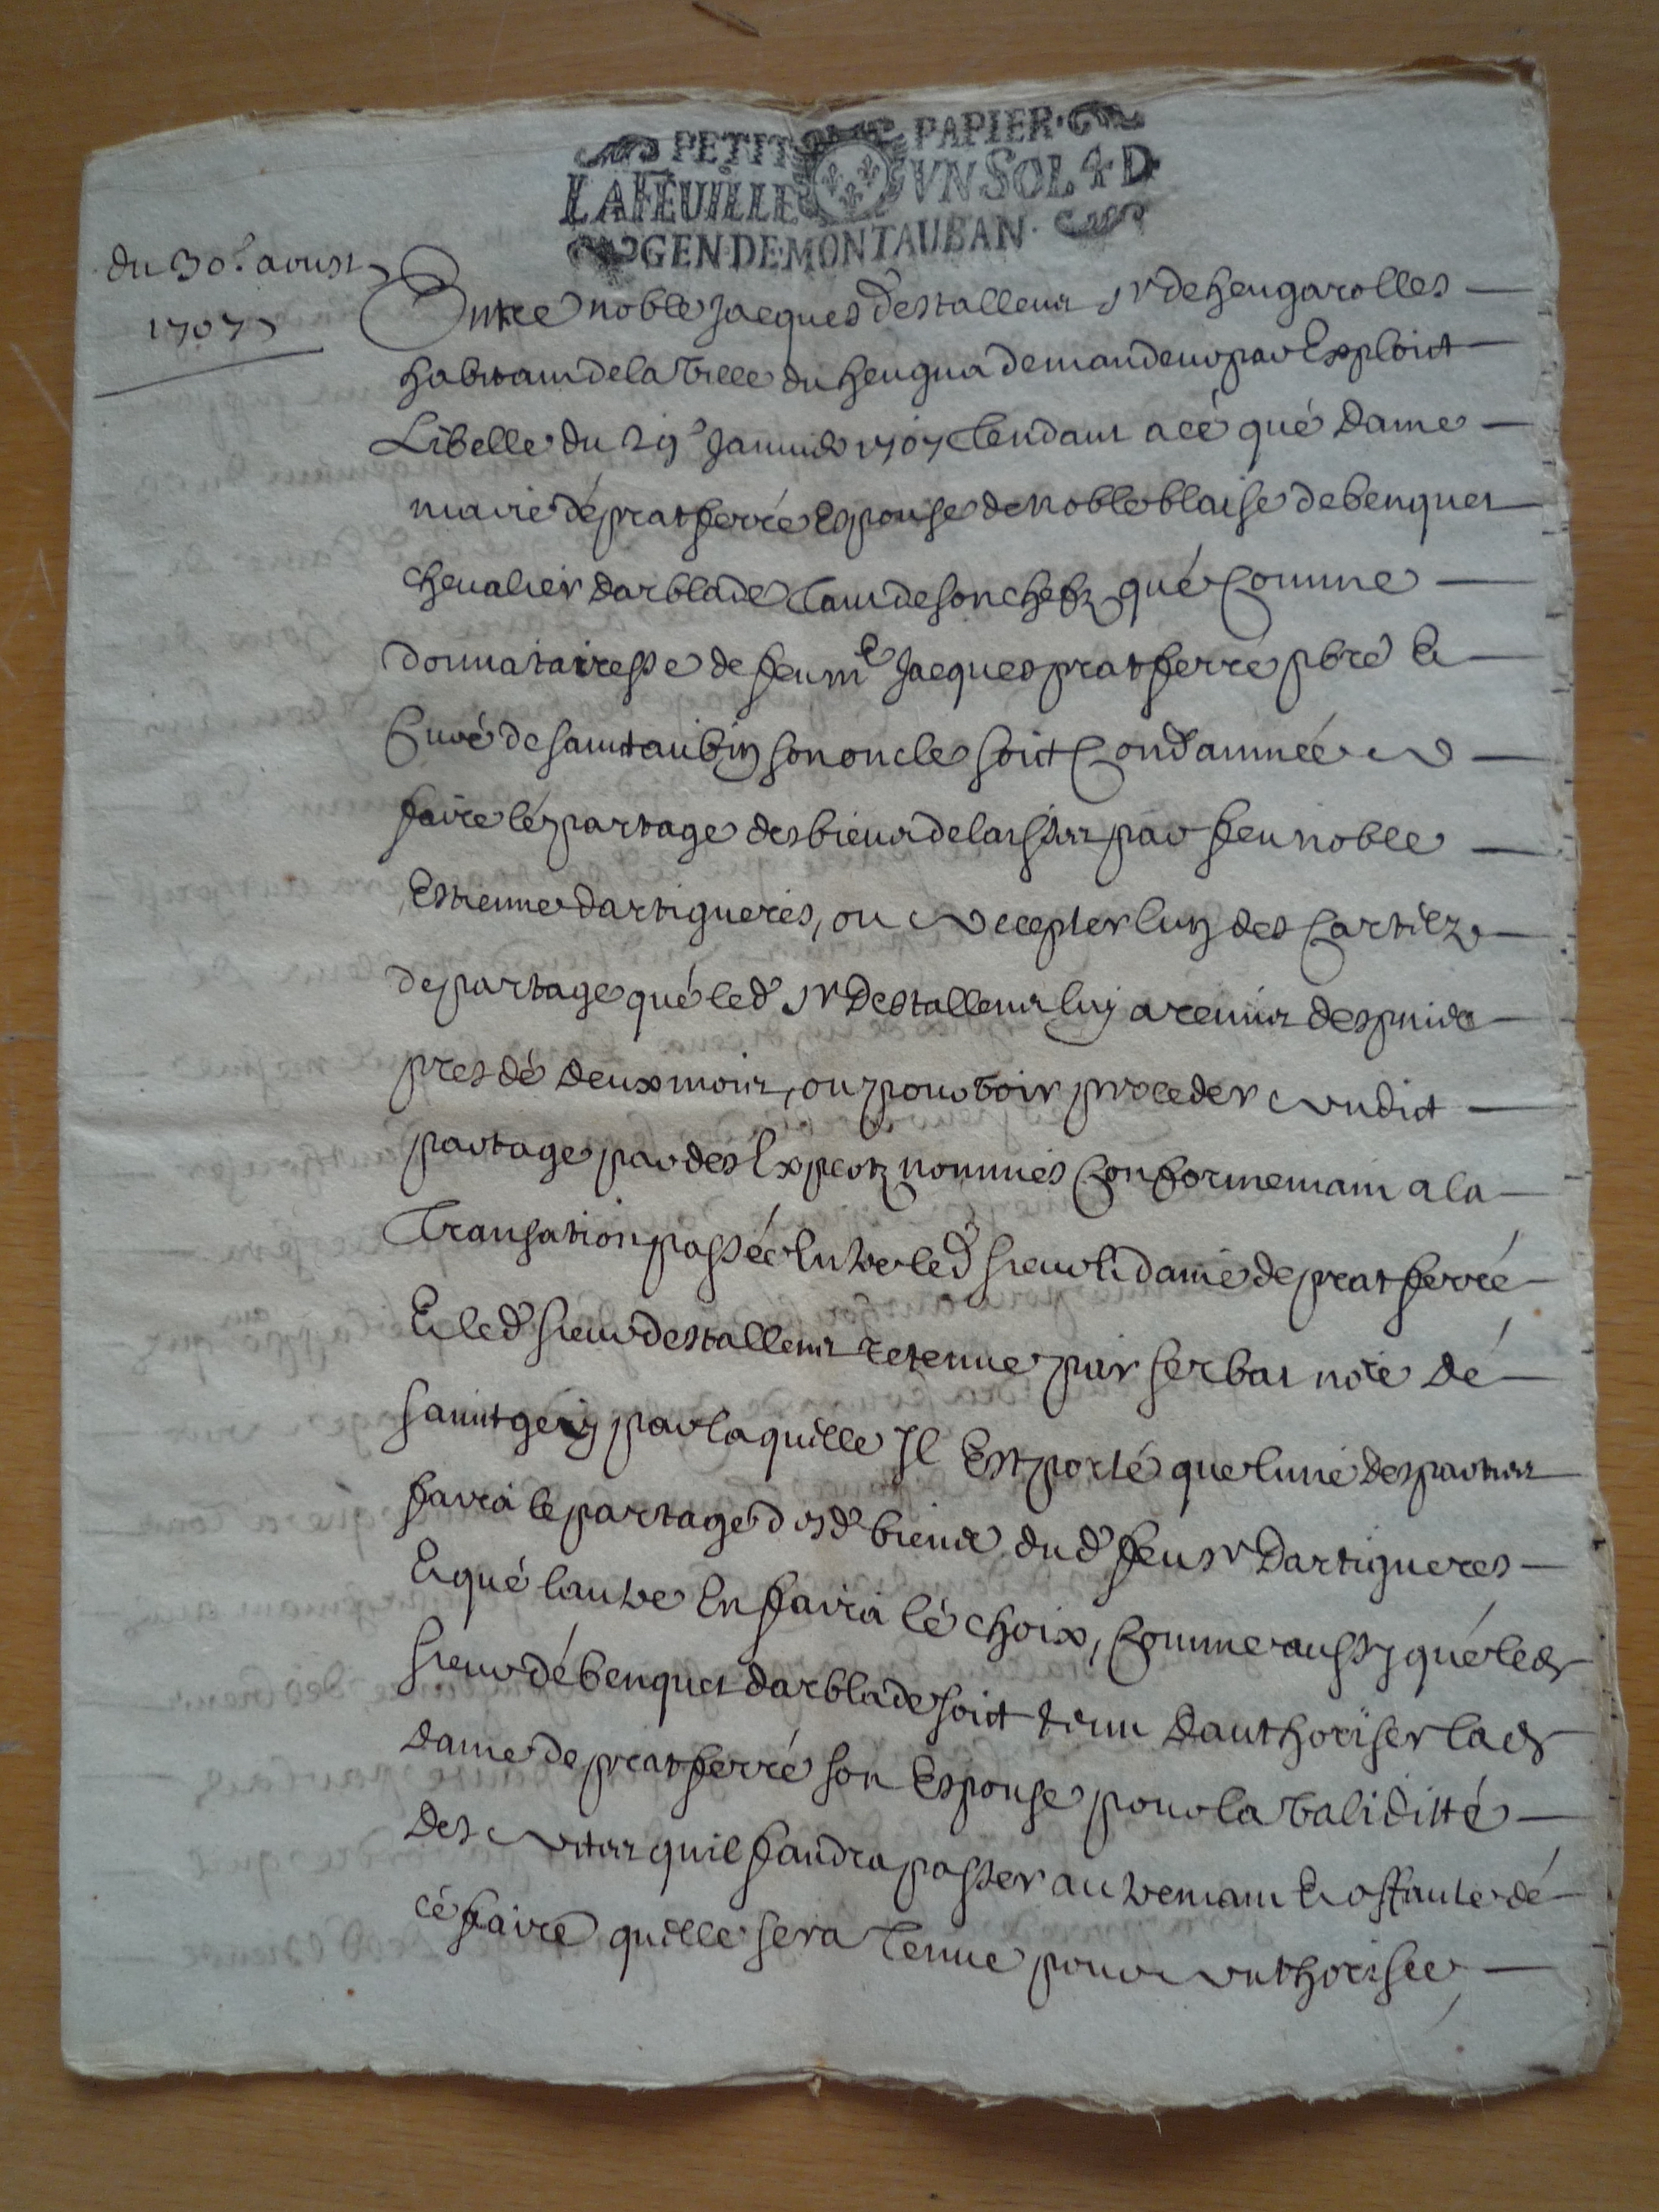 PETIT PAPIER
LA FEUILLE VN SOL 4 D
GEN·DE·MONTAUBAN
du 30.e aoust
1707
Entre noble Jacques destallens sr de heugarolles
habitant de la ville du heuga demandeur par Exploict
Libelle du 29e Janvier 1707 tendant a cé qué Dame
marie dé pratferré Espouse de noble blaise debenquet
chevalier darblade tant de son chefz qué comme
donnataresse de feu me Jacques pratferré pbré Et
Curé de saintaubin son oncle soit condamnée a
faire lé partage des biens delaissés par feu noble
Estienne dartigueres, ou accepter lun des cartielz
de partage qué led sr Destallens luy a remis despuis
pres dé deux mois, ou pour voir proceder audict
partage par des Expertz nommés conformemant a la
Transation passée Entre led sieur Et dame de pratferré
Et led sieur destallens retenue par serbat nore dé
saintgein par laquelle Il Est porté que lune des parties
faira le partagé desd biens du d feu sr Dartigueres
Et qué lautre En faira lé choix, comme aussy qué led
sieur dé benquet darblade soit tenu dauthoriser lad
dame de pratferré son Espouse pour la validitté
des actes quil faudra passer autremant Et a faute dé
cé faire quelle sera tenue pour authorisée